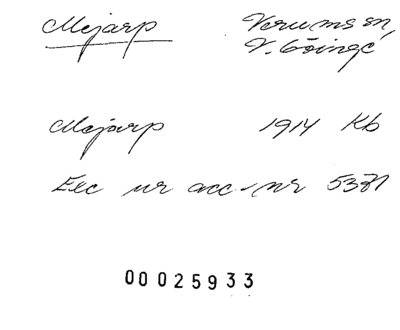 Mejarp Verums sn,
V. Göinge
Mejarp 1914 Kb
Exc ur acc-nr 5371
00025933